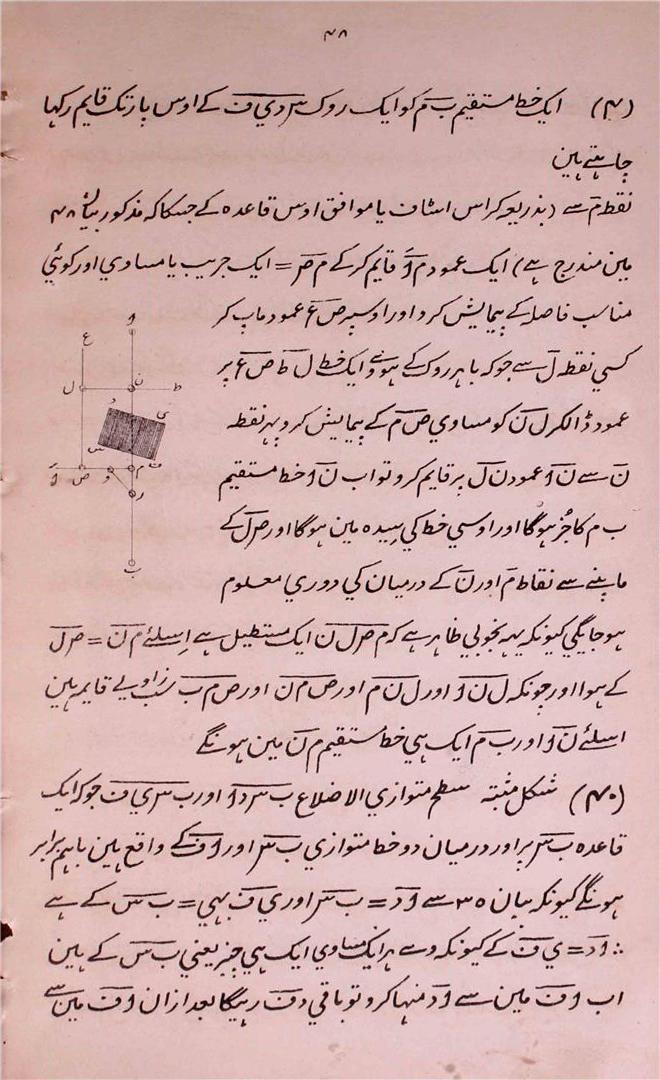 ۴۸
(۴) ایک خط مستقیم ب م کو ایک روک س د ي ف کے اوس پار تک قایم رکہا
چاہتے ہین
نقطہ م سے (بذریعہ کراس اسٹاف یا موافق اوس قاعدہ کے جسکا کہ مذکور بیان ۴۸
مین مندرج ہے) ایک عمود م و قایم کر کے م ص = ایک جریب یا مساوي اور کوئي
مناسب فاصلہ کے پیمایش کرو اور اوسپر ص ع عمود ماپ کر
ا
ع
کسي نقطہ ل سے جو کہ باہر روک کے ہووے ایک خط ل ط ص ع پر
ل ن ط
عمود ڈالکر ل ن کو مساوي ص م کے پیمایش کرو پہر نقطہ
د ي
ن سے ن ا عمود ن ل پر قایم کرو تو اب ن ا خط مستقیم
س ف
و ص و م
ب م کا جُز ہوگا اور اوسي خط کي سیدہ مین ہوگا اور ص ل کے
ر
ماپنے سے نقاط م اور ن کے درمیان کي دوري معلوم
ب
ہوجایگي کیونکہ یہہ بخوبي ظاہر ہے کہ م ص ل ن ایک مستطیل ہے اِسلئے م ن = ص ل
کے ہوا اور چونکہ ل ن ا اور ل ن م اور ص م ن اور ص م ب سب زاویے قایم ہین
اسلئے ن ا اور ب م ایک ہي خط مستقیم م ن مین ہونگے
(۴۰) شکل مثبتہ سطح متوازي الاضلاع ب س د ا اور ب س ي ف جو کہ ایک
قاعدہ ب س پر اور درمیان دو خط متوازي ب س اور ا ف کے واقع ہین باہم برابر
ہونگے کیونکہ بیان ۳۵ سے ا د = ب س اور ي ف بہي = ب س کے ہے
∴ ا د = ي ف کے کیونکہ وے ہر ایک مساوي ایک ہي چیز یعني ب س کے ہین
اب ا ف مین سے ا د منہا کرو تو باقي د ف رہیگا بعد ازان ا ف مین سے